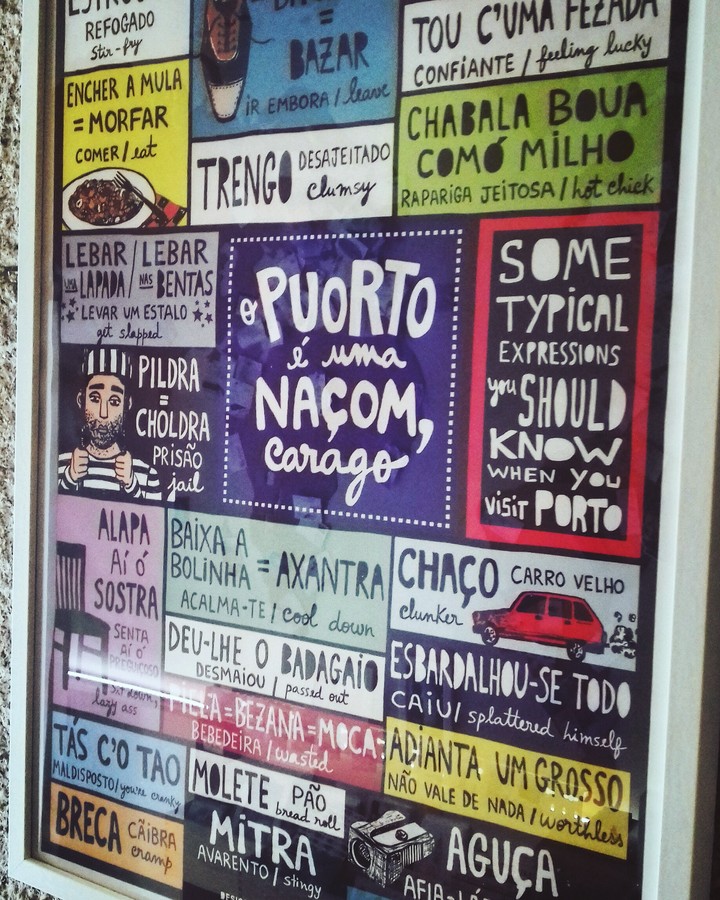 REFOGADO
stir-fry
=
BAZAR
IR EMBORA / leave
TOU C'UMA FEZADA
CONFIANTE / feeling lucky
ENCHER A MULA
= MORFAR
COMER / eat
TRENGO DESAJEITADO
clumsy
CHABALA BOUA
COMÓ MILHO
RAPARIGA JEITOSA / hot chick
LEBAR / LEBAR
UMA LAPADA / NAS BENTAS
LEVAR UM ESTALO
get slapped
O PUORTO
é uma
NAÇOM,
carago
SOME
TYPICAL
EXPRESSIONS
you SHOULD
KNOW
WHEN YOU
visit PORTO
PILDRA
=
CHOLDRA
PRISÃO
jail
ALAPA
AÍ Ó
SOSTRA
SENTA
AÍ Ó
PREGUIÇOSO
sit down,
lazy ass
BAIXA A
BOLINHA = AXANTRA
ACALMA-TE / cool down
CHAÇO CARRO VELHO
clunker
DEU-LHE O BADAGAIO
DESMAIOU / passed out
ESBARDALHOU-SE TODO
CAIU / splattered himself
PIELA = BEZANA = MOCA
BEBEDEIRA / wasted
TÁS C'O TAO
MALDISPOSTO / you're cranky
MOLETE PÃO
bread roll
ADIANTA UM GROSSO
NÃO VALE DE NADA / worthless
BRECA CÃIBRA
cramp
MITRA
AVARENTO / stingy
AGUÇA